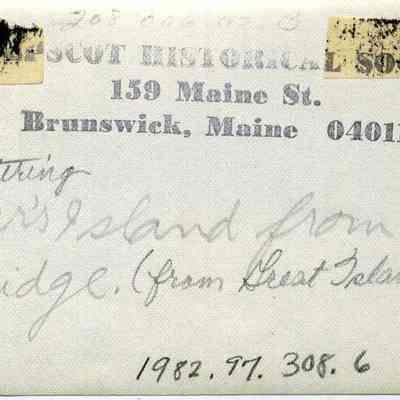 EPSCOT HISTORICAL SO
159 Maine St.
Brunswick, Maine 04011
ering
r's Island from
idge. (from Great Islan
1982.97.308.6